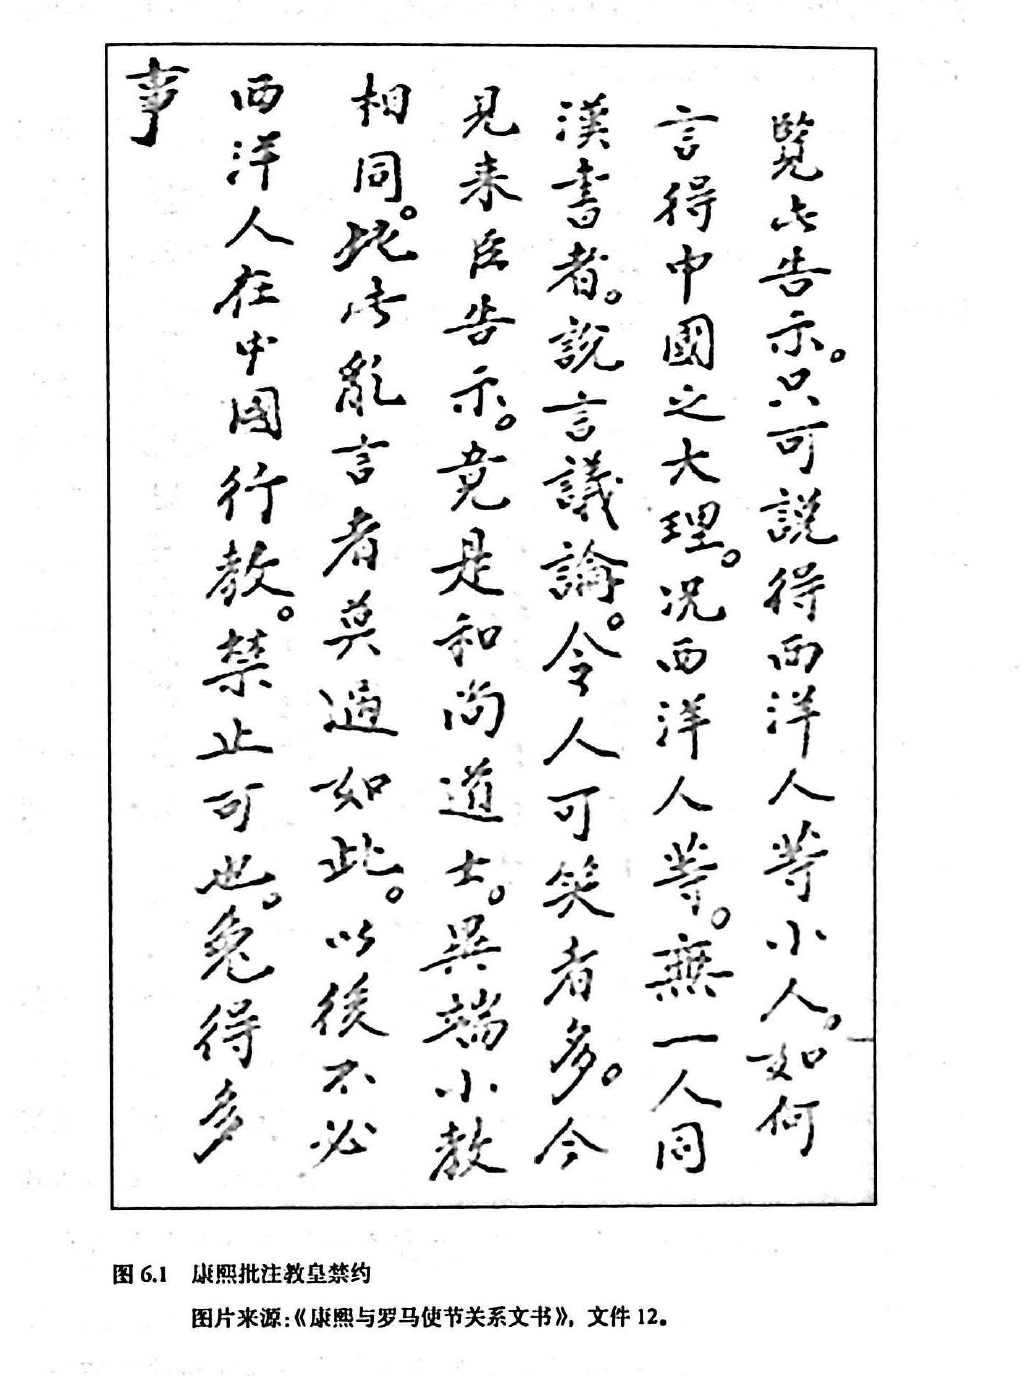 覽此告示。只可說得西洋人等小人。如何
言得中國之大理。况西洋人等。無一人同
漢書者。說言議論。令人可笑者多。今
見来臣告示。竟是和尚道士。異端小教
相同。彼此亂言者莫過如此。以後不必
西洋人在中國行教。禁止可也。免得多
事
图 6.1 康熙批注教皇禁约
图片来源:《康熙与罗马使节关系文书》，文件 12。